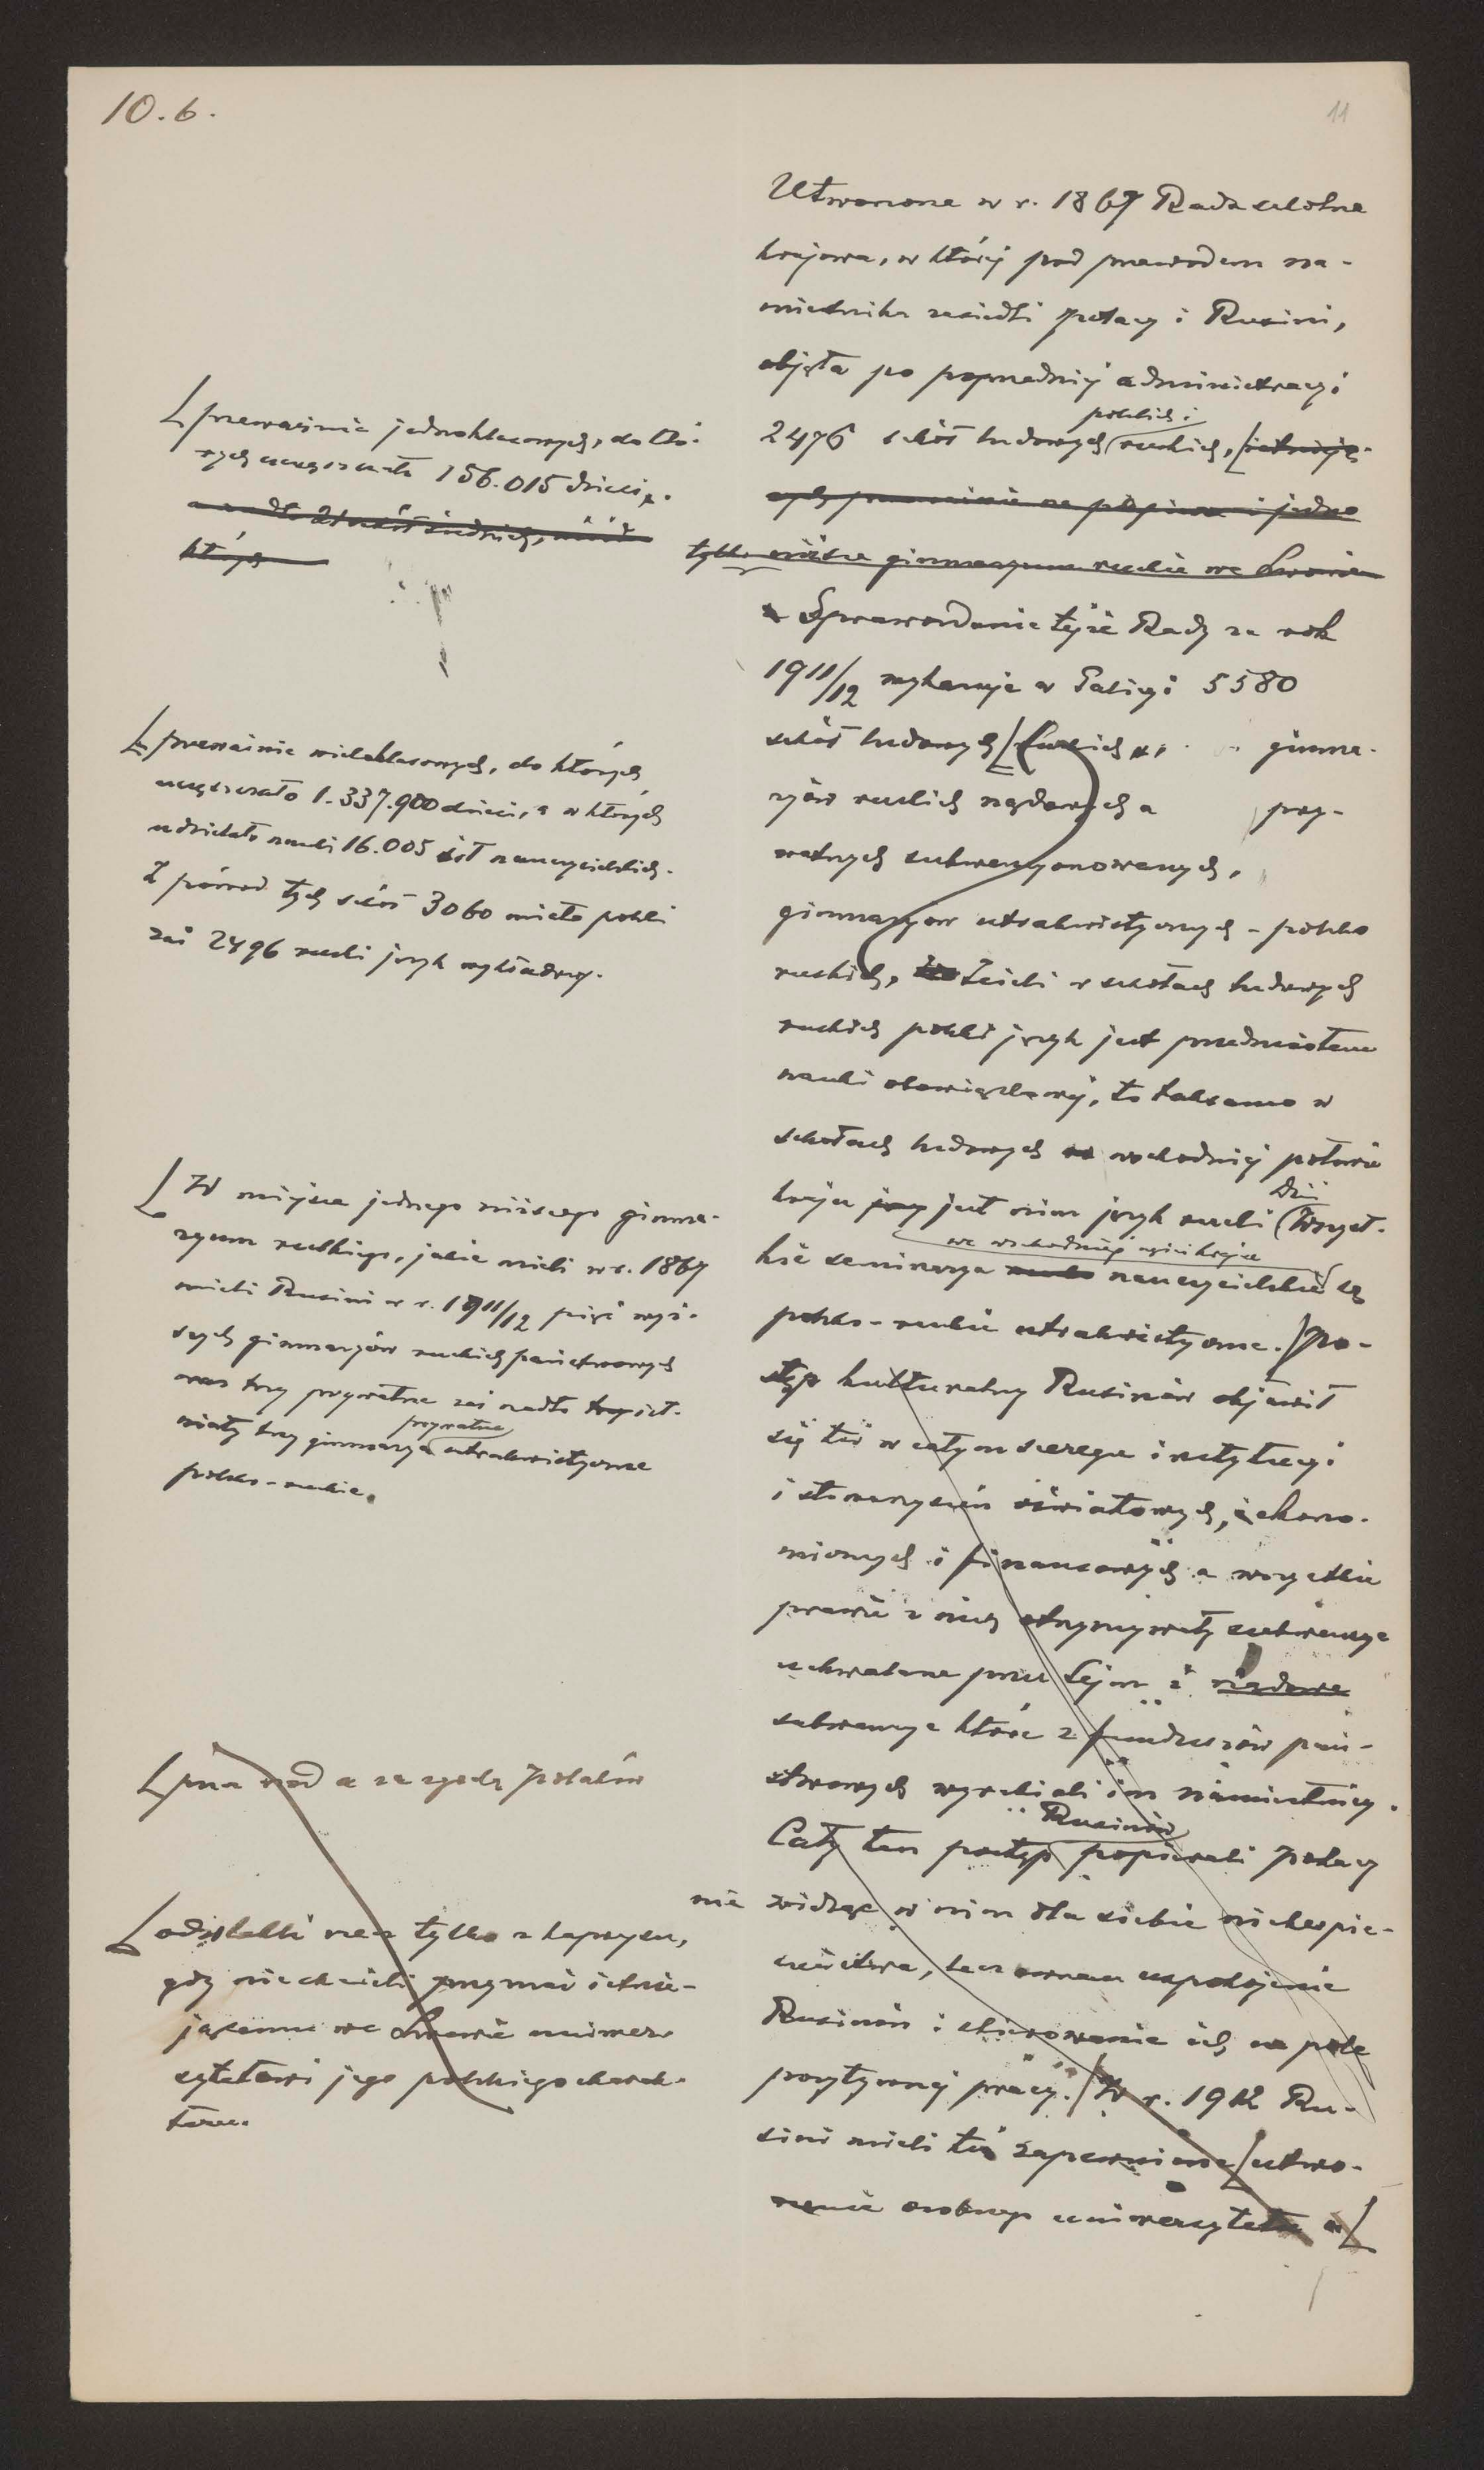 10.6.
11
Utworzona w r. 1867 Rada szkolna
krajowa, w której pod przewodem na-
miestnika zasiedli Polacy i Rusini,
objęła po poprzedniej administracyi
polskich i
2476 szkół ludowych ruskich, istnieją-
cych przeważnie na papierze i jedno
tylko niższe gimnazyum ruskie we Lwowie
Sprawozdanie tejże Rady za rok
1911/12 wykazuje w Galicyi 5580
szkół ludowych gimna-
zyów ruskich rządowych a pry-
watnych subwencyonowanych,
gimnazyów utrakwistycznych - polsko
ruskich, Jeżeli w szkołach ludowych
ruskich polski język jest przedmiotem
nauki obowiązkowej, to taksamo w
szkołach ludowych wschodniej połowie
dziś
kraju jest nim język ruski Wszyst-
we wschodniej części kraju
kie seminarya nauczycielskie są
polsko-ruskie utrakwistyczne. Po-
stęp kulturalny Rusinów objawił
się też w całym szeregu instytucyi
i stowarzyszeń oświatowych, ekono-
micznych i finansowych a wszystkie
prawie z nich otrzymywały subwencye
uchwalane przez Sejm i rządowe
subwencye które z funduszów pań-
stwowych wyrabiali im namiestnicy.
Rusinów
Cały ten postęp popierali Polacy
nie widząc w nim dla siebie niebezpie-
czeństwa, lecz owszem uspokojenie
Rusinów i skierowanie ich na pole
pozytywnej pracy. W r. 1912 Ru-
sini mieli też zapewnione utwo-
rzenie osobnego uniwersytetu
przeważnie jednoklasowych, do któ-
rych uczęszczało 156.015 dzieci.
a nadto szkół średnich,
których
przeważnie wieloklasowych, do których
uczęszczało 1.337.900 dzieci, a w których
udzielało nauki 16.005 sił nauczycielskich.
Z pośród tych szkół 3060 miało polski
zaś 2496 ruski język wykładowy.
W miejsce jednego niższego gimna-
zyum ruskiego, jakie mieli w r. 1867
mieli Rusini w r. 1911/12 pięć wyż-
szych gimnazyów ruskich państwowych
oraz trzy prywatne zaś nadto ist-
prywatne
niały trzy gimnazya utrakwistyczne
polsko-ruskie.
przez rząd a za zgodą Polaków
odwlekli rzecz tylko z kaprysu,
gdy nie chcieli przyznać istnie-
jącemu we Lwowie uniwer-
sytetowi jego polskiego charak-
teru.